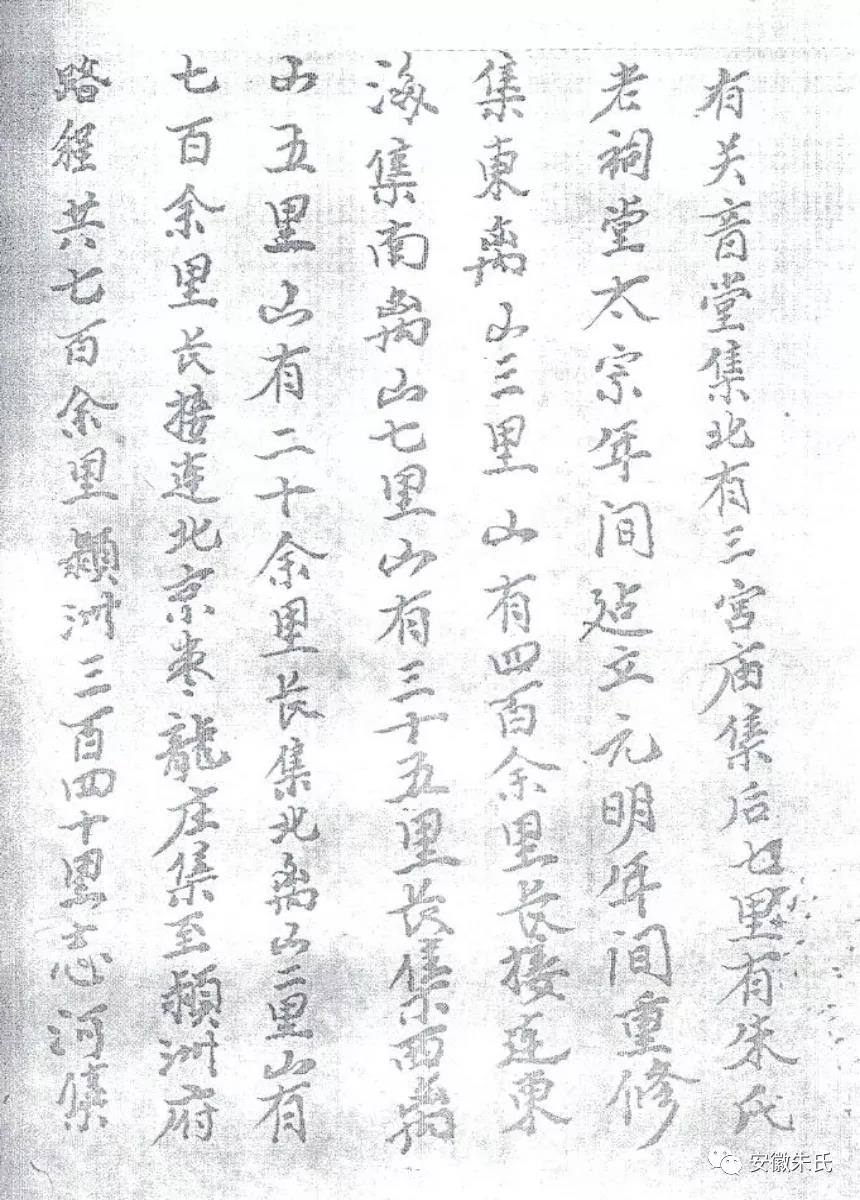 有关音堂集北有三官庙集后七里有朱氏
老祠堂太宗年间建立元明年间重修
集東离山三里山有四百余里长接连東
海集南离山七里山有三十五里长集西离
山五里山有二十余里长集北离山二里山有
七百余里长接连北京枣龍庄集至颖洲府
路程共七百余里颖洲三百四十里志河集
安徽朱氏